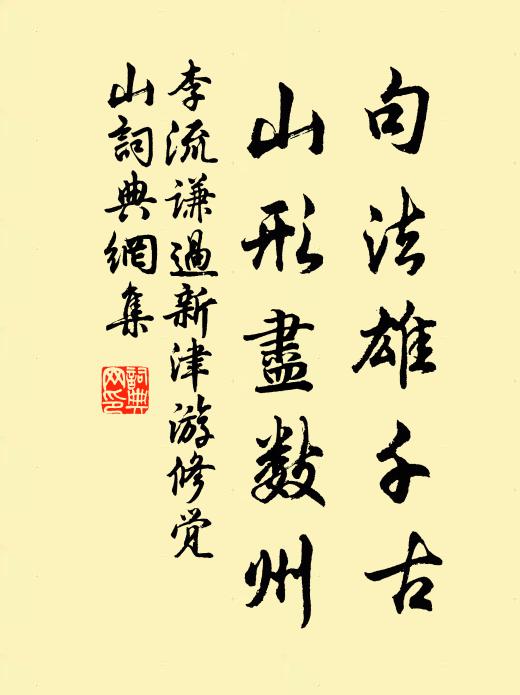 句法雄千古
山形盡數州
李流谦過新津游修觉
山詞典網集
詞典網印